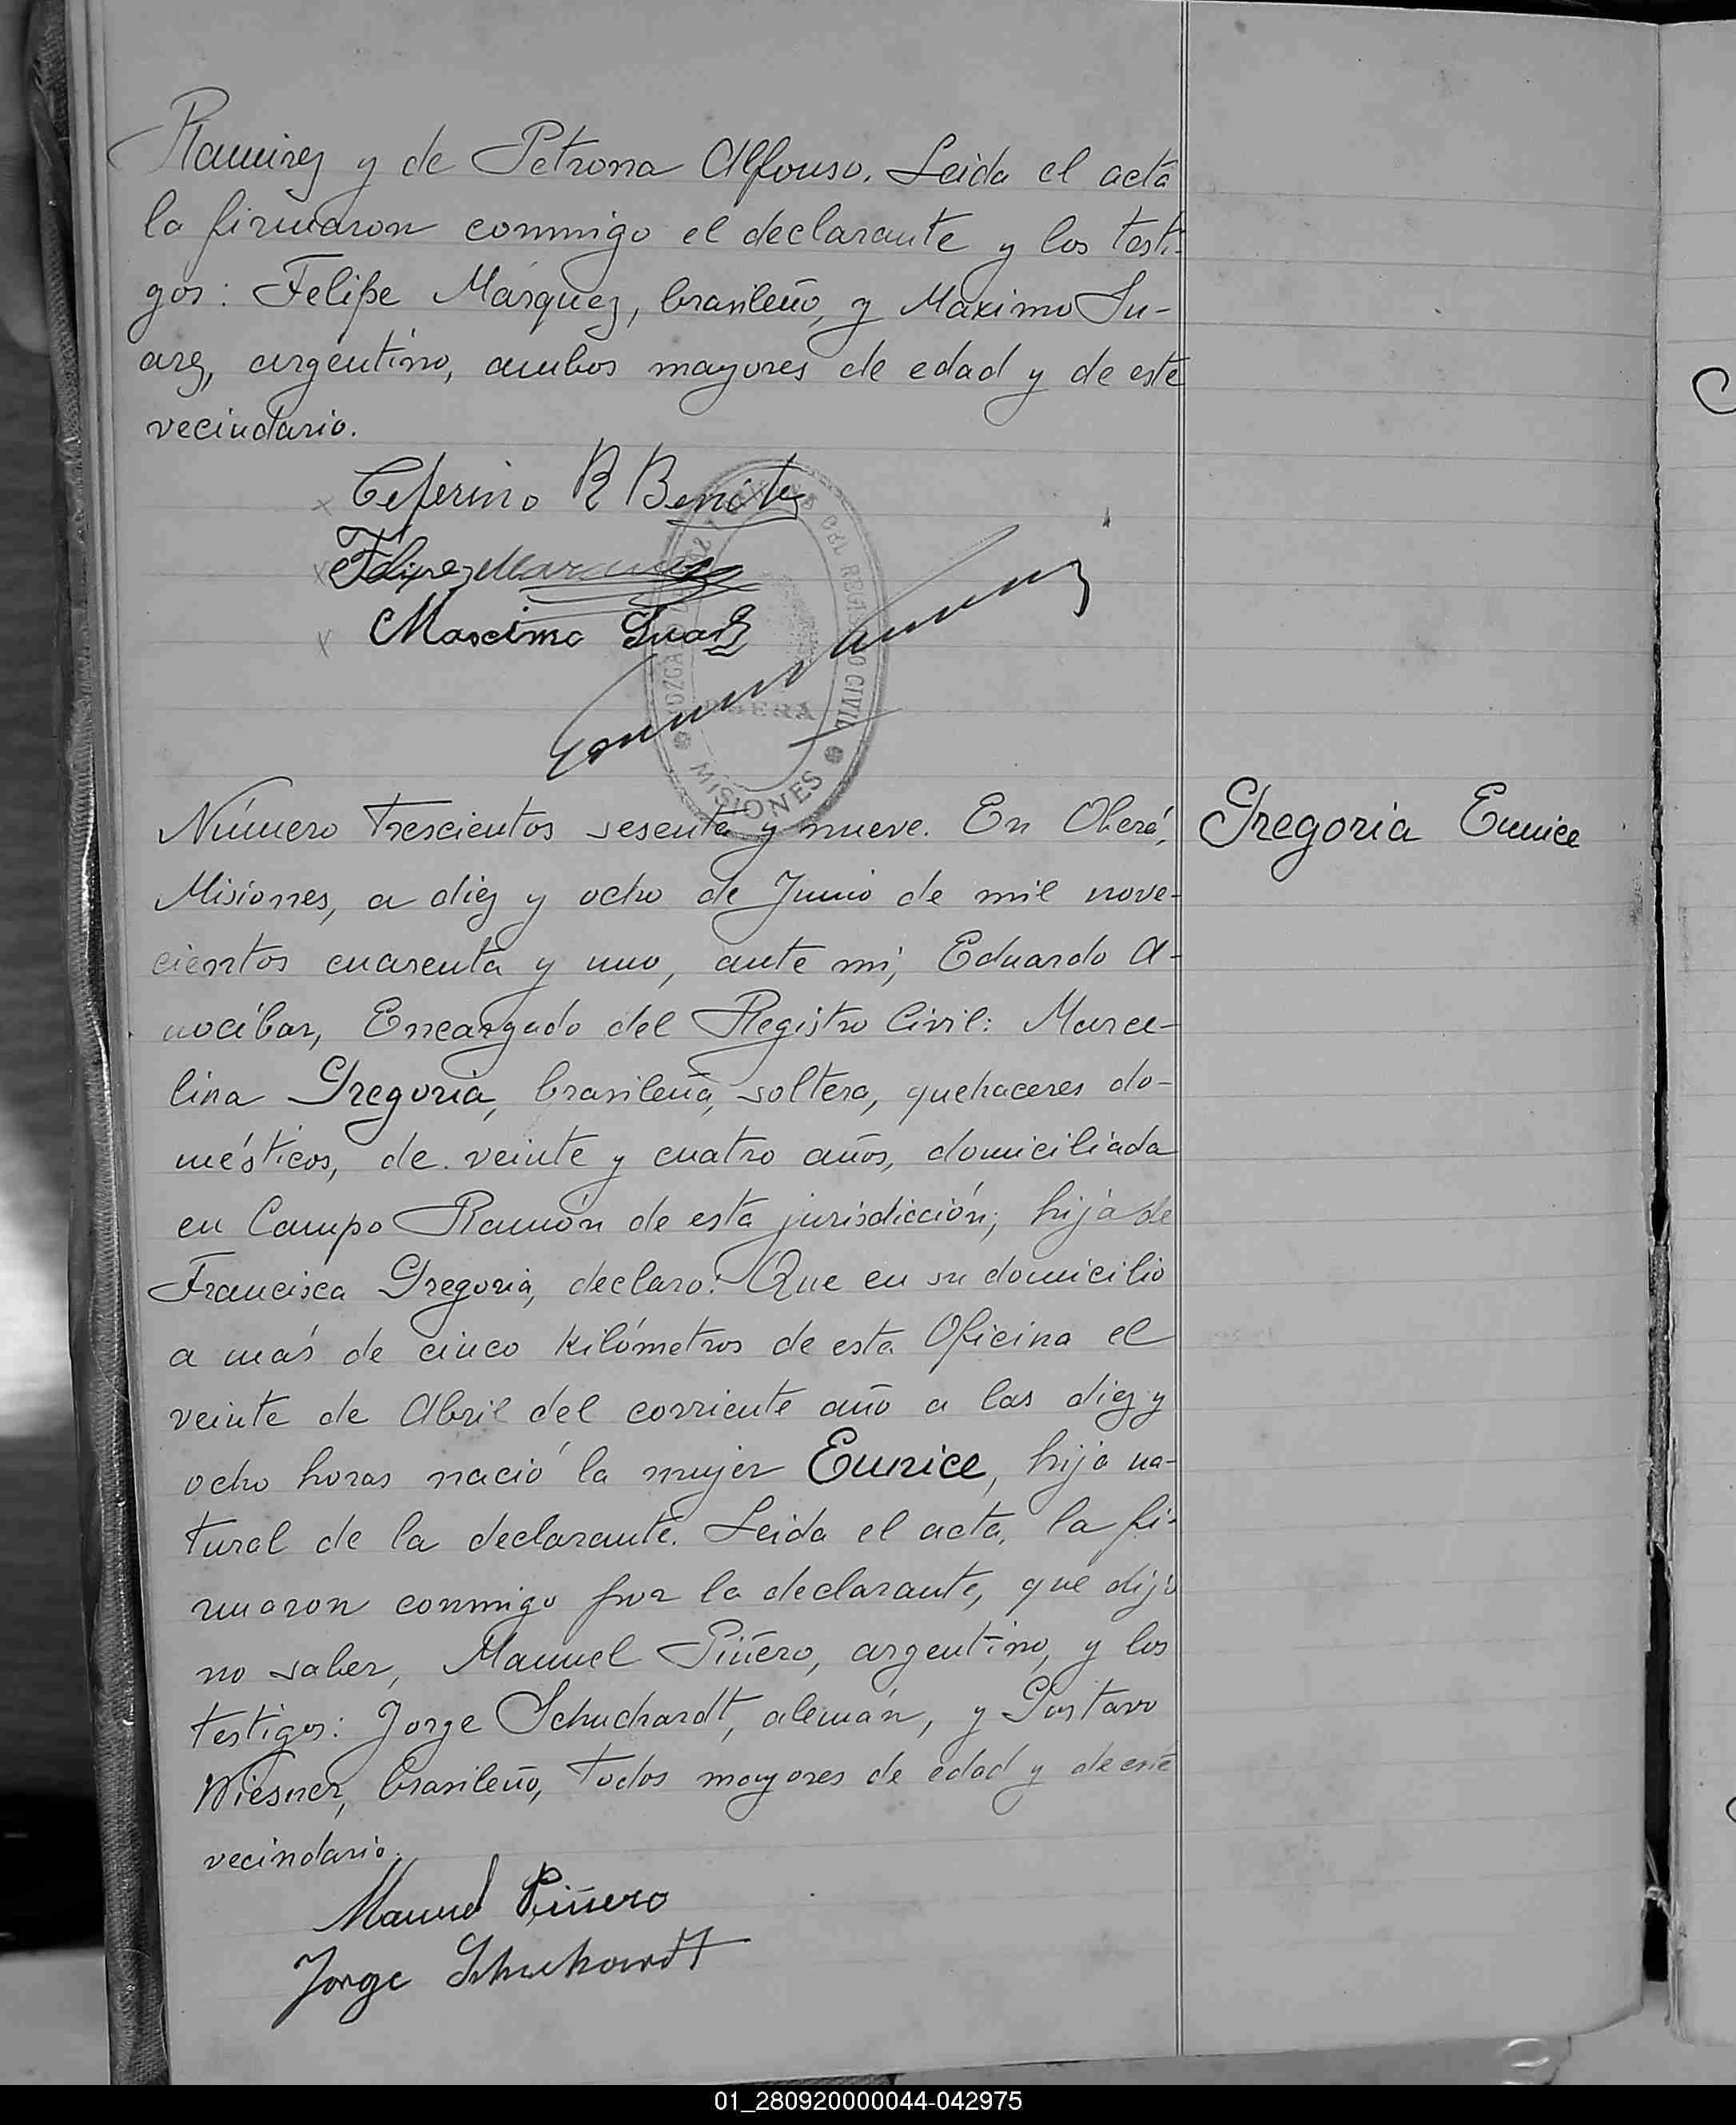 Ramirez y de Petrona Alfonso. Leida el acta
la firmaron conmigo el declarante y los testi-
gos: Felipe Márquez, brasileño, y Maximo Su-
arez, argentino, ambos mayores de edad y de este
vecindario.
x Ceferino R Benitez
x Felipe Marquez
x Maximo Suarez
JUZGADO DEL REGISTRO CIVIL
OBERA
MISIONES
Número trescientos sesenta y nueve. En Oberá,
Gregoria Eunice
Misiones, a diez y ocho de Junio de mil nove-
cientos cuarenta y uno, ante mi, Eduardo A-
nocíbar, Encargado del Registro Civil: Marce-
lina Gregoria, brasileña, soltera, quehaceres do-
mésticos, de veinte y cuatro años, domiciliada
en Campo Ramón de esta jurisdicción, hija de
Francisca Gregoria, declaro: Que en su domicilio
a más de cinco kilómetros de esta Oficina el
veinte de Abril del corriente año a las diez y
ocho horas nació la mujer Eunice, hija na-
tural de la declarante. Leida el acta, la fi-
rmaron conmigo por la declarante, que dijo
no saber, Manuel Piñero, argentino, y los
testigos: Jorge Schuchardt, alemán, y Gustavo
Wiesner, brasileño, todos mayores de edad y de este
vecindario.
Manuel Piñero
Jorge Schuchardt
01_280920000044-042975